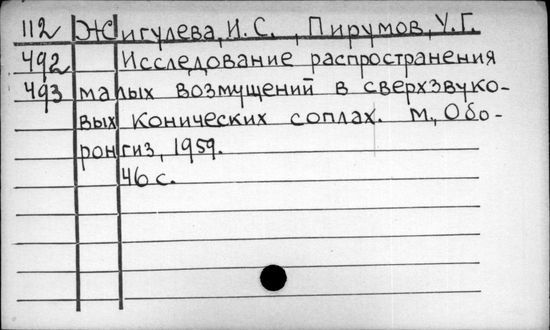 112 Жигулева, И. С. , Пирумов, У. Г.
492 Исследование распространения
493 малых возмущений в сверхзвуко-
вых конических соплах. М., Обо-
ронгиз, 1959.
46 с.